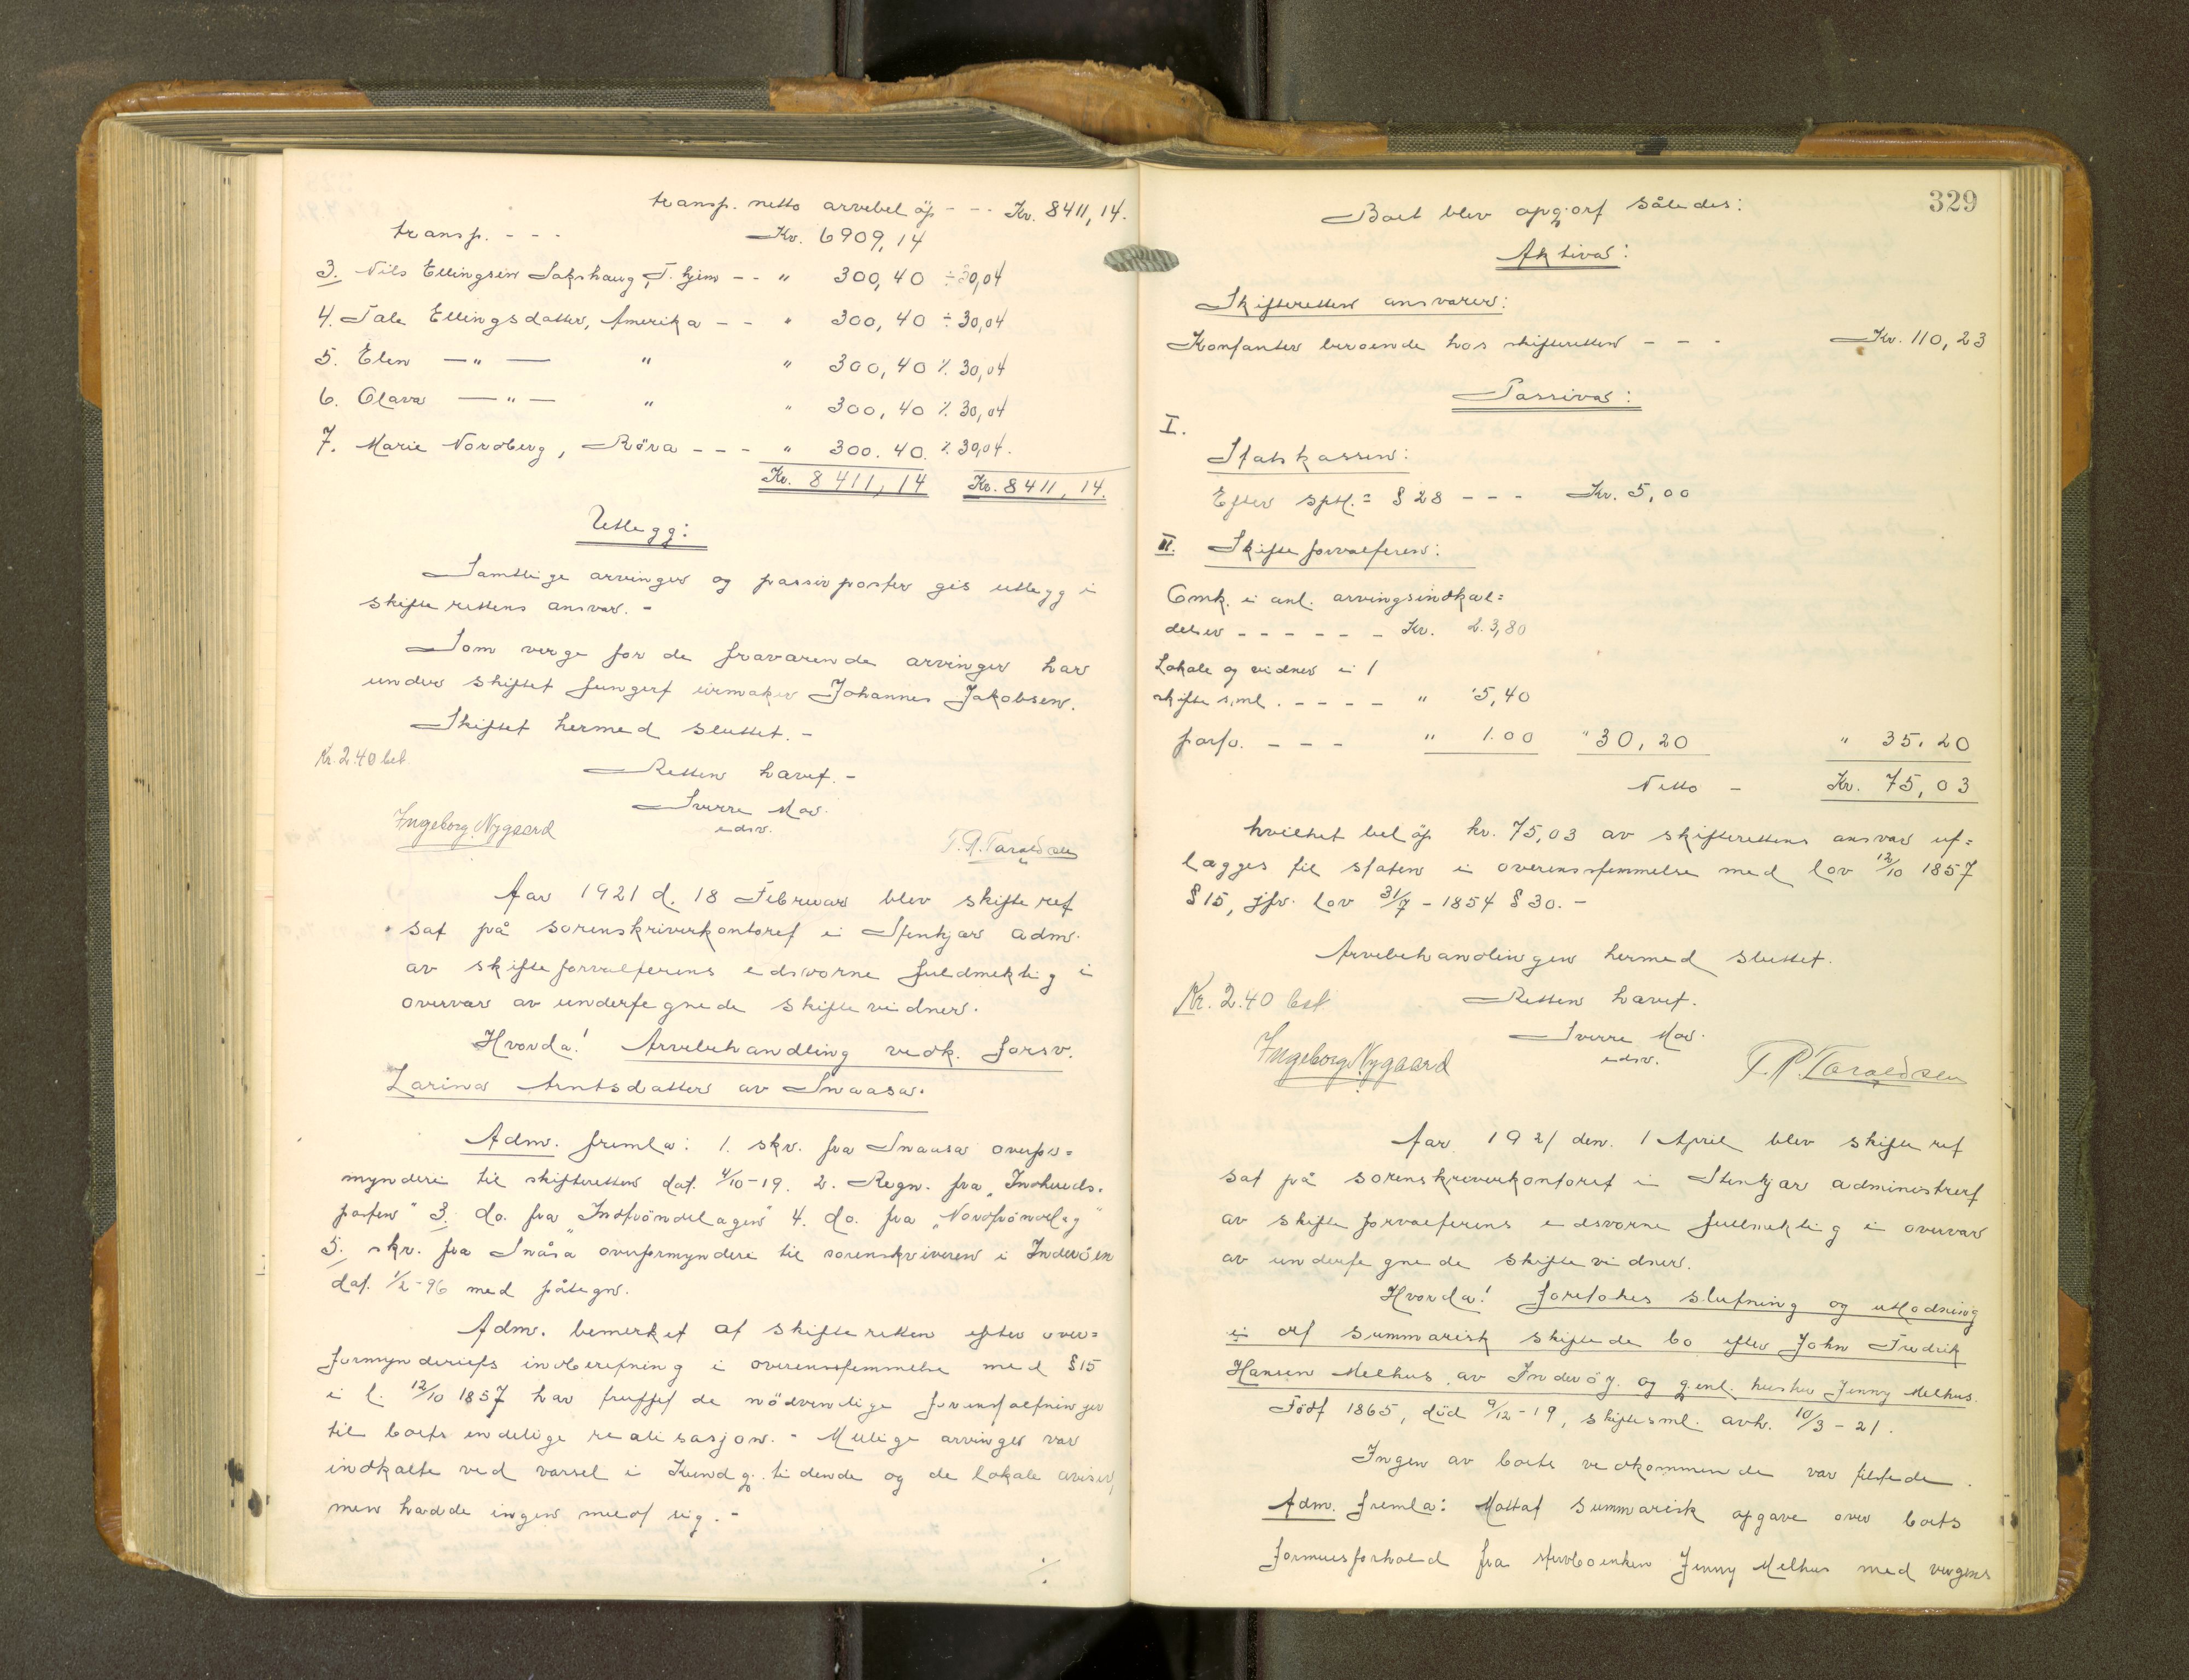 transp. netto arvebeløp - - - Kr. 8411,14.
transp. - - - Kr. 6909,14
3. Nils Ellingsen Sakshaug, T.hjem - - " 300,40 ÷ 30,04
4. Tale Ellingsdatter, Amerika - - " 300,40 ÷ 30,04
5. Elen —"— " " 300,40 % 30,04
6. Olava —"— " " 300,40 % 30,04
7. Marie Nordberg, Röra - - - " 300.40. % 30,04.
Kr. 8411,14 Kr. 8411,14.
Utlegg:
Samtlige arvinger og passivposter gis utlegg i
skifterettens ansvar. -
Som verge for de fraværende arvinger har
under skiftet fungert urmaker Johannes Jakobsen.
Skiftet hermed sluttet. -
Kr. 2.40 bet.
Retten hævet. -
Sverre Mo.
edsv.
Ingeborg Nygaard
T. R. Taraldsen
Aar 1921 d. 18 Februar blev skifteret
sat på sorenskriverkontoret i Stenkjær adm.
av skifteforvalterens edsvorne fuldmektig i
overvær av undertegnede skiftevidner.
Hvorda! Arvebehandling vedk. forsv.
Zarina Arntsdatter av Snaasa.
Adm. fremla: 1. skr. fra Snaasa overfor=
mynderi til skifteretten dat. 4/10-19. 2. Regn. fra "Indhereds-
posten" 3. do. fra "Indtröndelagen" 4. do. fra "Nordtröndelag"
5. skr. fra Snåsa overformynderi til sorenskriveren i Inderöen
dat. 1/2-96 med påtegn.
Adm. bemerket at skifteretten efter over=
formynderiets indberetning i overensstemmelse med § 15
i l. 12/10 1857 har truffet de nödvendige foranstaltninger
til boets endelige realisasjon. - Mulige arvinger var
indkalte ved varsel i Kundg.tidende og de lokale aviser,
men hadde ingen meldt sig. -
./.
329
Boet blev opgjort således:
Aktiva:
Skifteretten ansvarer:
Kontanter beroende hos skifteretten - - - Kr. 110,23
Passiva:
I.
Statskassen:
Efter sptl.= § 28 - - - Kr. 5,00
II. Skifteforvalteren:
Omk. i anl. arvingsindkal=
delser - - - - - - Kr. 23,80
Lokale og vidner i 1
skiftesml. - - - - - " 5,40
porto. - - - " 1.00 " 30,20 " 35.20
Netto - Kr. 75,03
hvilket belöp kr. 75,03 av skifterettens ansvar ut=
lægges til staten i overensstemmelse med lov 12/10 1857
§ 15, jfr. lov 31/7 - 1854 § 30. -
Arvebehandlingen hermed sluttet.
Kr. 2.40 bet.
Retten hævet.
Sverre Mo.
edsv.
Ingeborg Nygaard
T. R. Taraldsen
Aar 1921 den 1 April blev skifteret
sat på sorenskriverkontoret i Stenkjær administrert
av skifteforvalterens edsvorne fullmektig i overvær
av undertegnede skiftevidner.
Hvorda! foretokes slutning og utlodning
i det summarisk skiftede bo efter John Fredrik
Hansen Melhus av Inderöy og gjenl. hustru Jenny Melhus.
Född 1865, död 9/12-19, skiftesml. avh. 10/3-21.
Ingen av boets vedkommende var tilstede.
Adm. fremla: Mottat summarisk opgave over boets
formuesforhold fra stervboenken Jenny Melhus med vergens